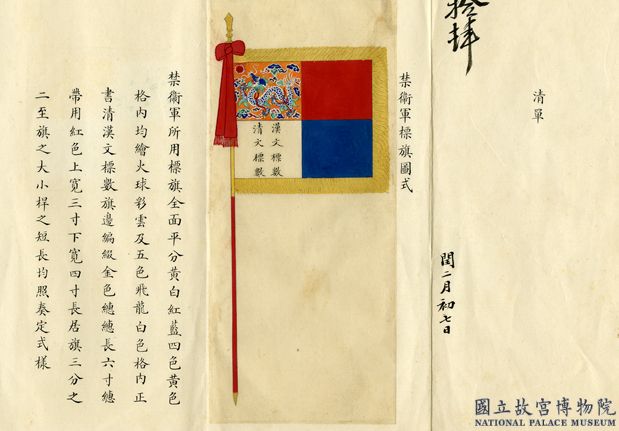 拾肆
清單
閏二月初七日
禁衛軍標旗圖式
漢文標數
清文標數
禁衛軍所用標旗全面平分黃白紅藍四色黃色
格內均繪火球彩雲及五色飛龍白色格內正
書清漢文標數旗邊編綴金色總總長六寸總
帶用紅色上寬三寸下寬四寸長居旗三分之
二至旗之大小桿之短長均照奏定式樣
國立故宮博物院
NATIONAL PALACE MUSEUM